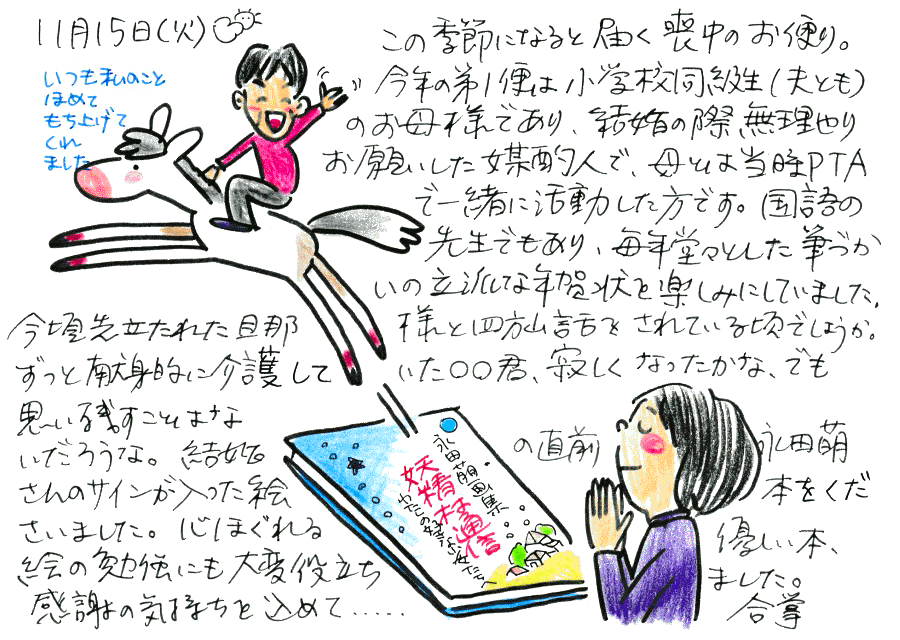 11月15日(火)
いつも私のこと
ほめて
もち上げて
くれ
ました
この季節になると届く喪中のお便り。
今年の第1便は小学校同級生(夫とも)
のお母様であり、結婚の際無理やり
お願いした媒酌人で、母とは当時PTA
で一緒に活動した方です。国語の
先生でもあり、毎年堂々とした筆づか
いの立派な年賀状を楽しみにしていました。
今頃先立たれた旦那様と四方山話をされている頃でしょうか。
ずっと献身的に介護していた〇〇君、寂しくなったかな、でも
思い残すことはな
いだろうな。結婚の直前永田萌
さんのサインが入った絵本をくだ
さいました。心ほぐれる優しい本、
絵の勉強にも大変役立ちました。
感謝の気持ちを込めて.....合掌
永田萌画集
妖精村通信